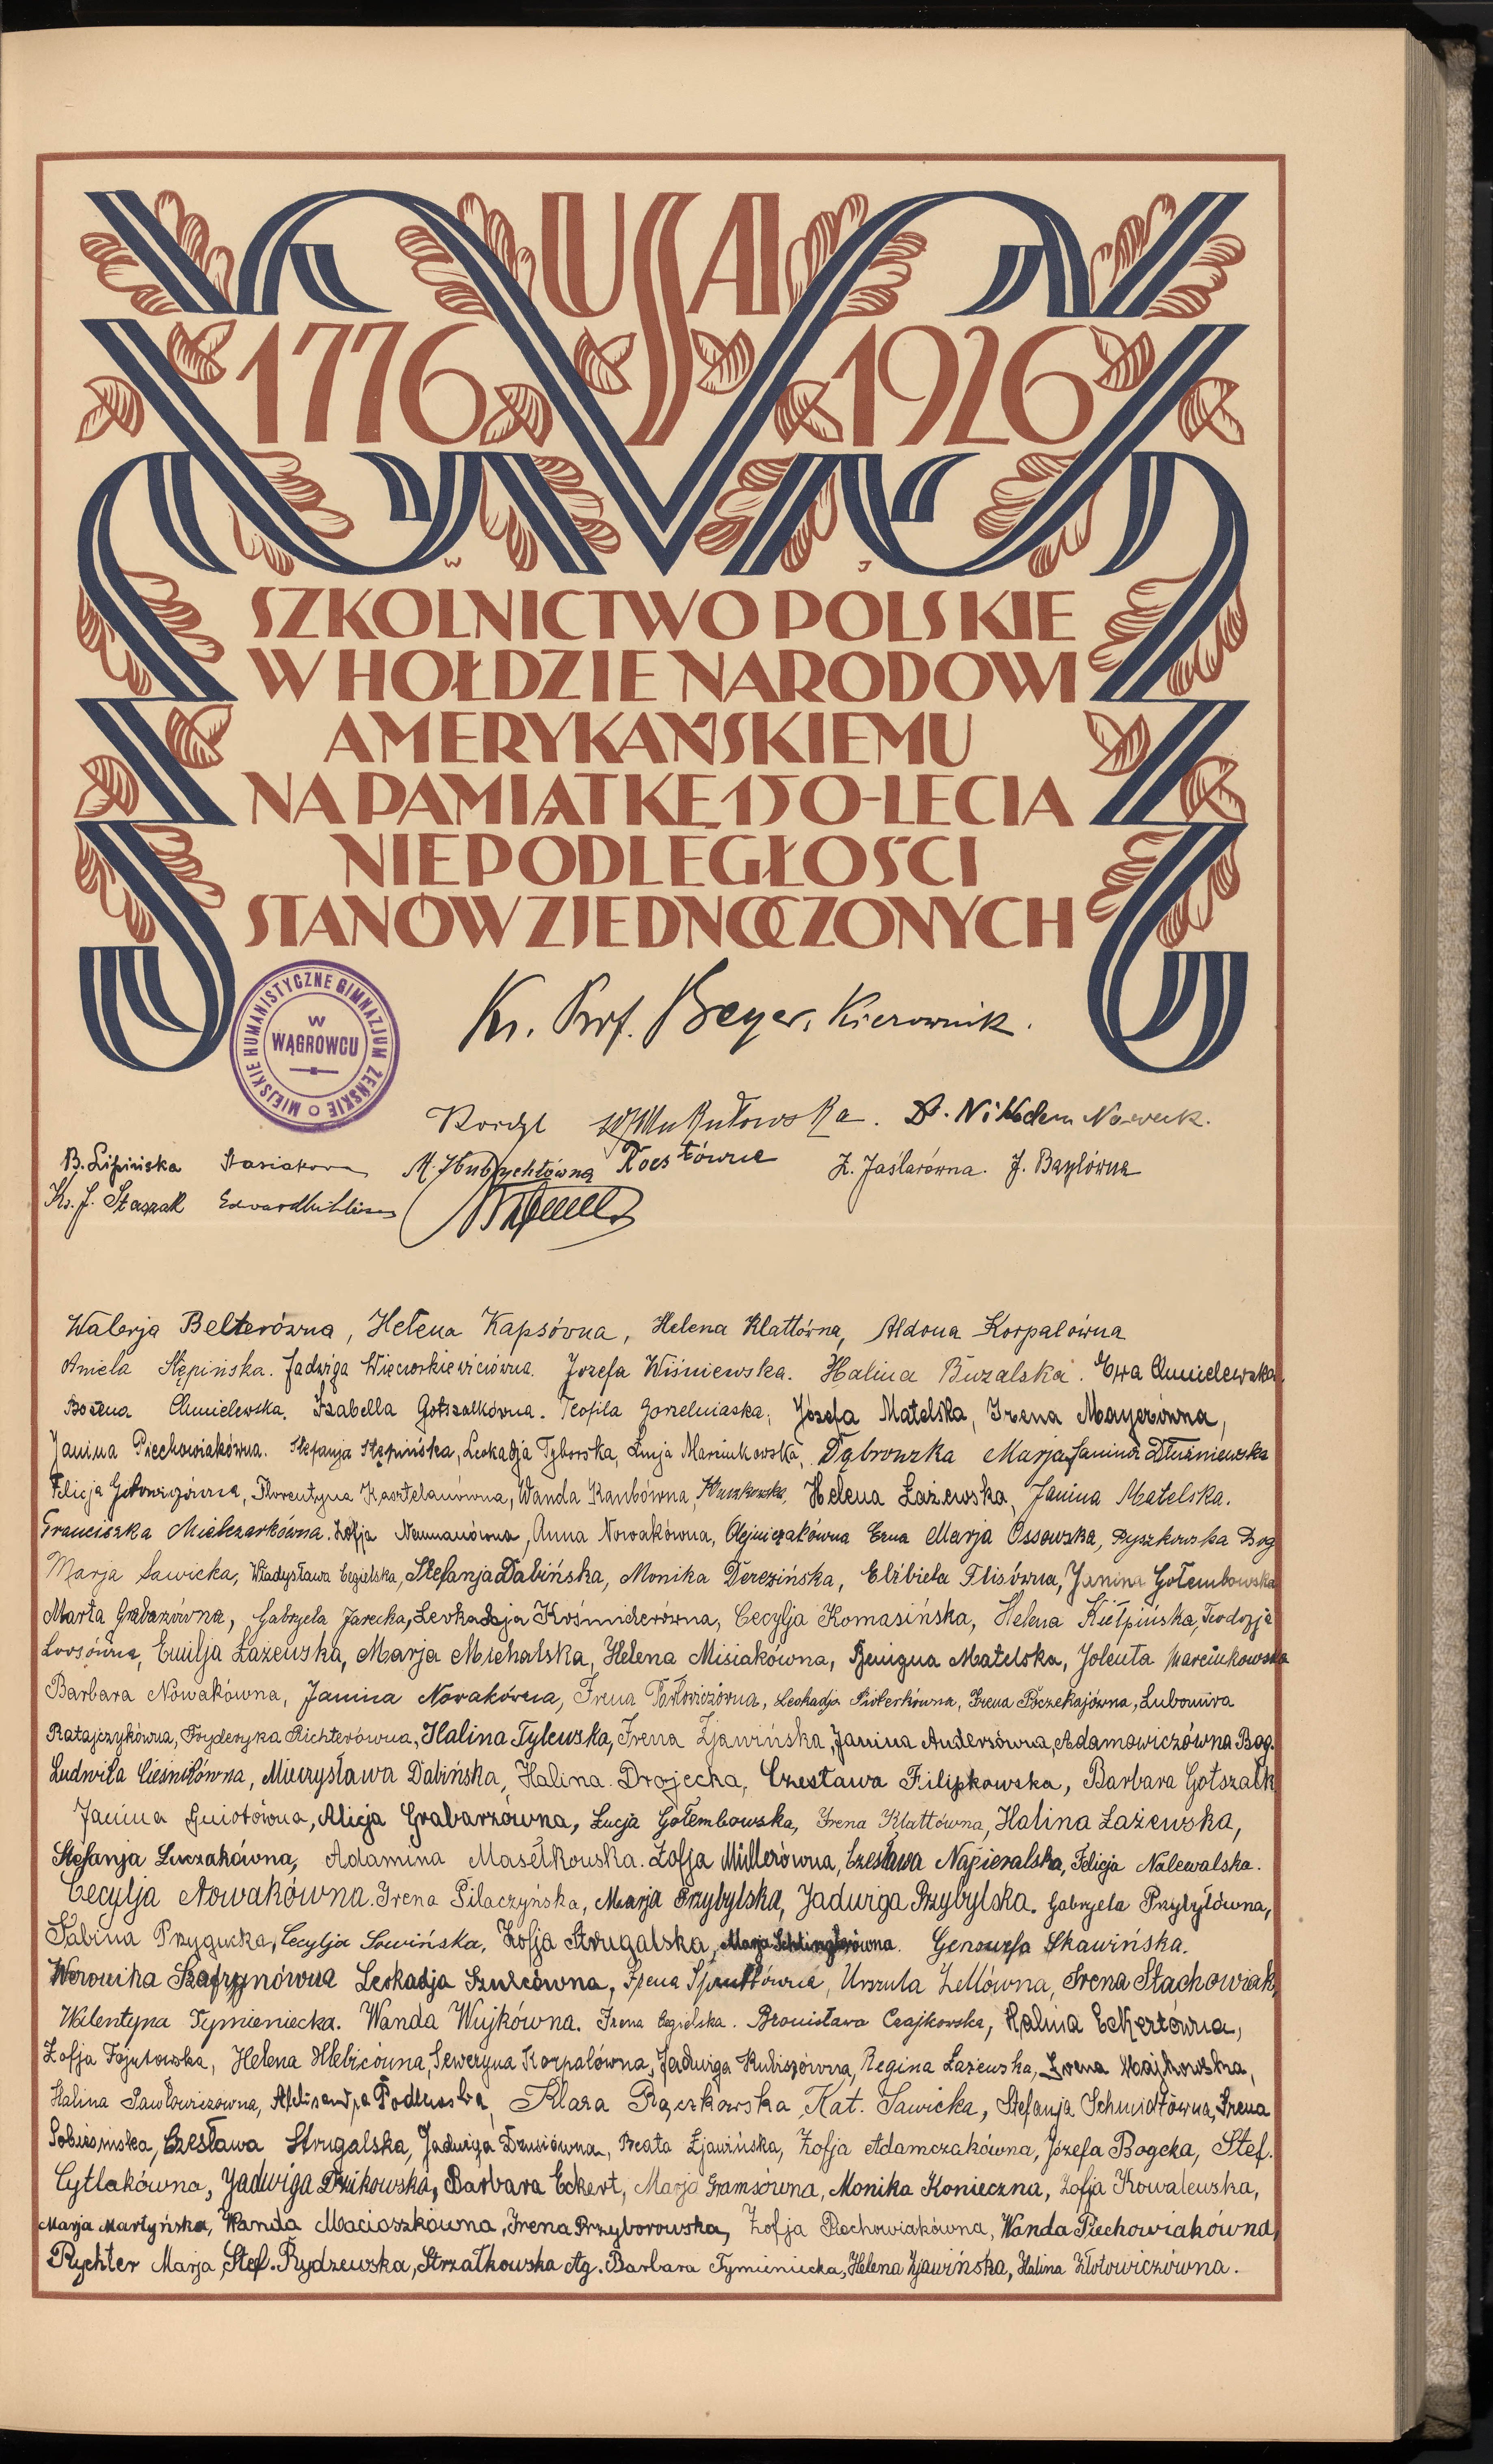 USA
1776 1926
W J
SZKOLNICTWO POLSKIE
W HOŁDZIE NARODOWI
AMERYKAŃSKIEMU
NA PAMIĄTKĘ 150-LECIA
NIEPODLEGŁOŚCI
STANÓW ZJEDNOCZONYCH
MIEJSKIE HUMANISTYCZNE GIMNAZJUM ŻEŃSKIE
W
WĄGROWCU
Ks. Prof. Beyer, Kierownik.
Dr. Nikodem Nowak.
B. Lipińska Stasiakowa M. Hubrychtówna Z. Jaślarówna. J. Bazylówna
Ks. J. Staszak
Walerja Belterówna, Helena Kapsówna, Helena Klattówna, Aldona Korpalówna
Aniela Stępińska. Jadwiga Więckorkiewiczówna. Jozefa Wiśniewska. Halina Buzalska. Ewa Chmielewska
Bożena Chmielewska. Izabella Gotszalkówna. Teofila Gorzelniaska, Józefa Matelska, Irena Mayerówna,
Janina Piechowiakówna. Stefanja Stępińska, Leokadja Tyborska, Łucja Marcinkowska, Dąbrowska Marja, Janina Dłużniewska
Felicja Florentyna Kasztelanówna, Wanda Kanbówna, Helena Łażewska, Janina Matelska.
Franciszka Mielczarkówna. Zofja Neumanówna, Anna Nowakówna, Olejniczakówna Erna Marja Ossowska, Ryszkowska Bog
Marja Sawicka, Władysława Cegielska, Stefanja Dabińska, Monika Derezińska, Elżbieta Flisówna, Janina Gołembowska
Marta Grabazówna, Gabryela Jarecka, Leokadja Kośmiderówna, Cecylja Komasińska, Helena Kiełpińska, Teodozja
Loosówna, Emilja Łażewska, Marja Michalska, Helena Misiakówna, Benigna Matelska, Jolenta Marcinkowska
Barbara Nowakówna, Janina Nowakówna, Irena Pawłowiczówna, Leokadja Pioterkówna, Irena Poczekajówna, Lubomira
Ratajczykówna, Fryderyka Richterówna, Halina Tylewska, Irena Zjawińska, Janina Anderszówna, Adamowiczówna Bog.
Ludwiła Cieśnilówna, Mieczysława Dabińska, Halina Drojecka, Czesława Filipkowska, Barbara Gotszalk
Janina Gniotówna, Alicja Grabarzówna, Łucja Gołembowska, Irena Klattówna, Halina Łażewska,
Stefanja Łuczakówna, Adamina Masełkouska. Zofja Müllerówna, Czesława Napieralska, Felicja Nalewalska.
Cecylja Nowakówna. Irena Pilaczyńska, Marja Przybylska, Jadwiga Przybylska. Gabryela Przybyłówna,
Sabina Przygucka, Cecylja Sowińska, Zofja Strugalska, Marja Schlinglerówna. Genowefa Skawińska.
Weronika Szafrynówna Leokadja Szulcówna, Irena Urszula Zellówna, Irena Stachowiak,
Walentyna Tymieniecka. Wanda Wujkówna. Irena Cegielska. Bronisława Czajkowska, Halina Eckertówna,
Zofja Fojutowska, Helena Hlebicówna, Seweryna Korpalówna, Jadwiga Kubiszówna, Regina Łażewska, Irena Majkowska,
Halina Pawłowiczówna, Klara Rączkowska, Kat. Sawicka, Stefanja Schmidtówna, Irena
Czesława Strugalska, Jadwiga Beata Zjawińska, Zofja Adamczakówna, Józefa Bogcka, Stef.
Cytlakówna, Jadwiga Dzikowska, Barbara Eckert, Marja Gramsówna, Monika Konieczna, Zofja Kowalewska,
Marja Martyńska, Wanda Macioszkówna, Irena Przyborowska, Zofja Piechowiakówna, Wanda Piechowiakówna,
Rychter Marja, Stef. Rydzewska, Strzałkowska Ag. Barbara Tymieniecka, Helena Zjawińska, Halina Złotowiczówna.